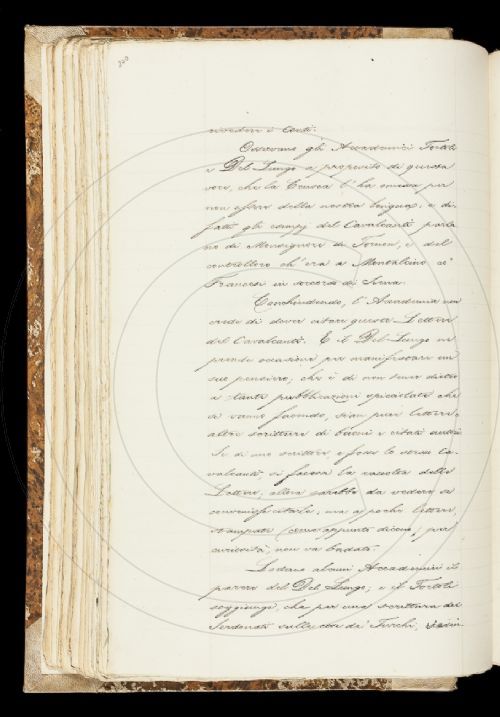 200
rivedere i conti.
Osservano gli Accademici Tortoli
e Del Lungo a proposito di questa
voce, che la Crusca l'ha omessa per
non essere della nostra lingua; e di
fatti gli esempj del Cavalcanti parla
no di Monsignore di Termes, e del
controllero ch'era a Montalcino co'
Francesi in soccorso di Siena.
Conchiudendo, l'Accademia non
crede di dover citare queste Lettere
del Cavalcanti. E il Del-Lungo ne
prende occasione per manifestare un
suo pensiero, che è di non tener dietro
a tante pubblicazioni spicciolate che
si vanno facendo, sian pure lettere o
altre scritture di buoni e citati autori.
Se di uno scrittore, e fosse lo stesso Ca-
valcanti, si facesse la raccolta delle
Lettere, allora sarebbe da vedere se
convenisse citarle; ma a poche lettere,
stampate come appunto dicono, per
curiosità, non va badato.
Lodano alcuni Accademici il
parere del Del Lungo; e il Tortoli
soggiunge, che per una scrittura del
Serdonati sulle cose de' Turchi,